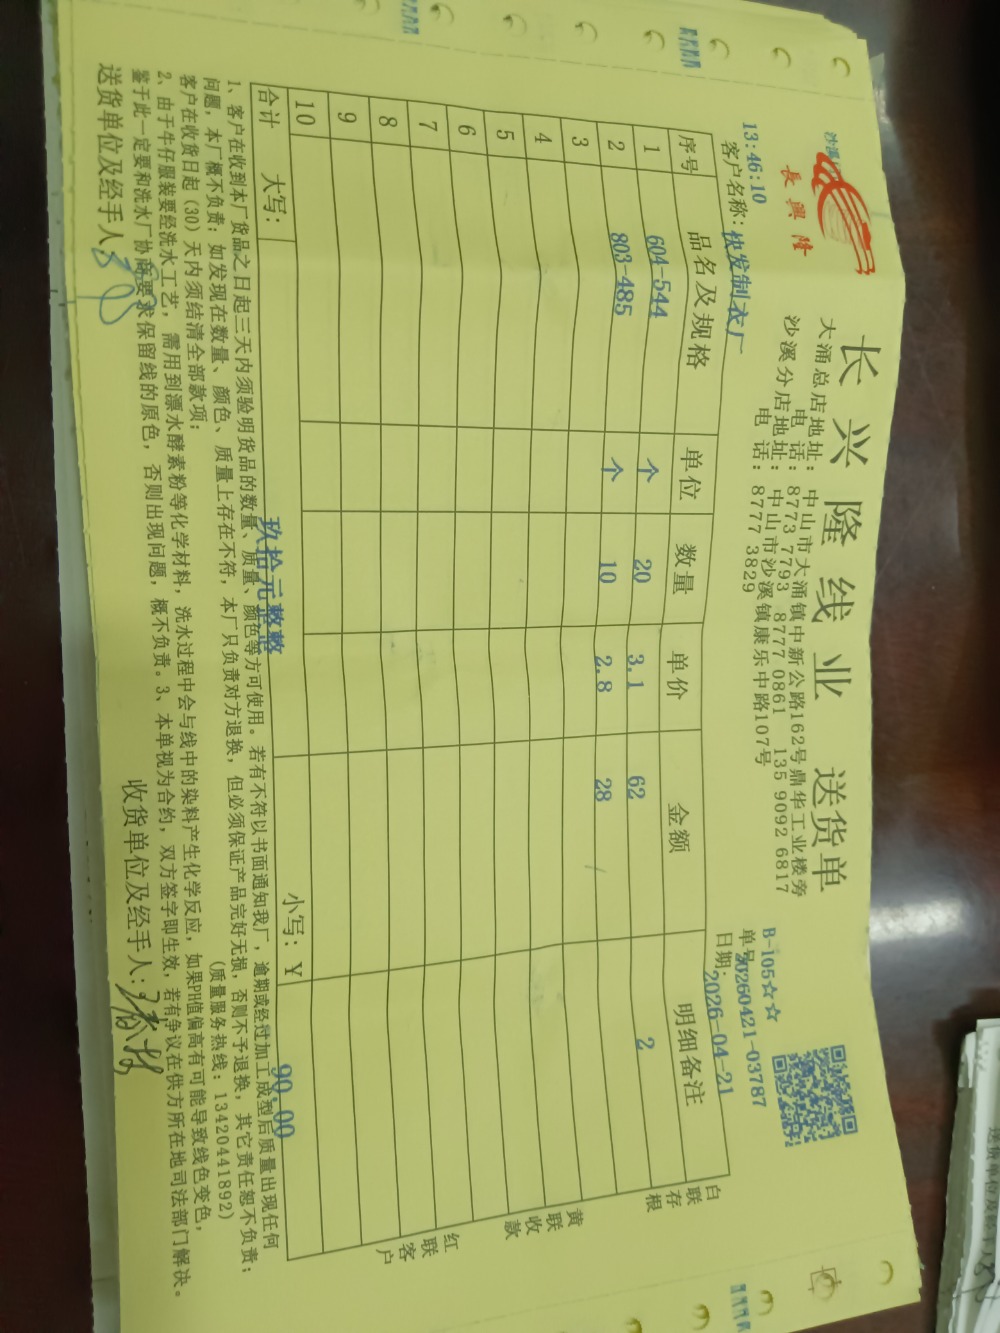 長興隆
长兴隆线业 送货单
大涌总店地址: 中山市大涌镇中新公路162号鼎华工业楼旁
电 话: 8773 7793 8777 0861 135 9092 6817
沙溪分店地址: 中山市沙溪镇康乐中路107号
电 话: 8777 3829
B-105☆☆
单号20260421-03787
日期: 2026-04-21
13:46:10
客户名称: 快发制衣厂
序号 品名及规格 单位 数量 单价 金额 明细备注
1 604-544 个 20 3.1 62 2
2 803-485 个 10 2.8 28
3
4
5
6
7
8
9
10
合计 大写: 玖拾元整整 小写: Y 90.00
白联存根
黄联收款
红联客户
1、客户在收到本厂货品之日起三天内须验明货品的数量、质量、颜色等方可使用。若有不符以书面通知我厂，逾期或经过加工成型后质量出现任何
问题，本厂概不负责；如发现在数量、颜色、质量上存在不符，本厂只负责对方退换，但必须保证产品完好无损，否则不予退换，其它责任恕不负责；
客户在收货日起（30）天内须结清全部款项； （质量服务热线: 13420441892）
2、由于牛仔服装要经洗水工艺，需用到漂水酵素粉等化学材料，洗水过程中会与线中的染料产生化学反应，如果PH值偏高有可能导致线色变色，
鉴于此一定要和洗水厂协商要求保留线的原色，否则出现问题，概不负责。3、本单视为合约，双方签字即生效，若有争议在供方所在地司法部门解决。
送货单位及经手人: 收货单位及经手人: